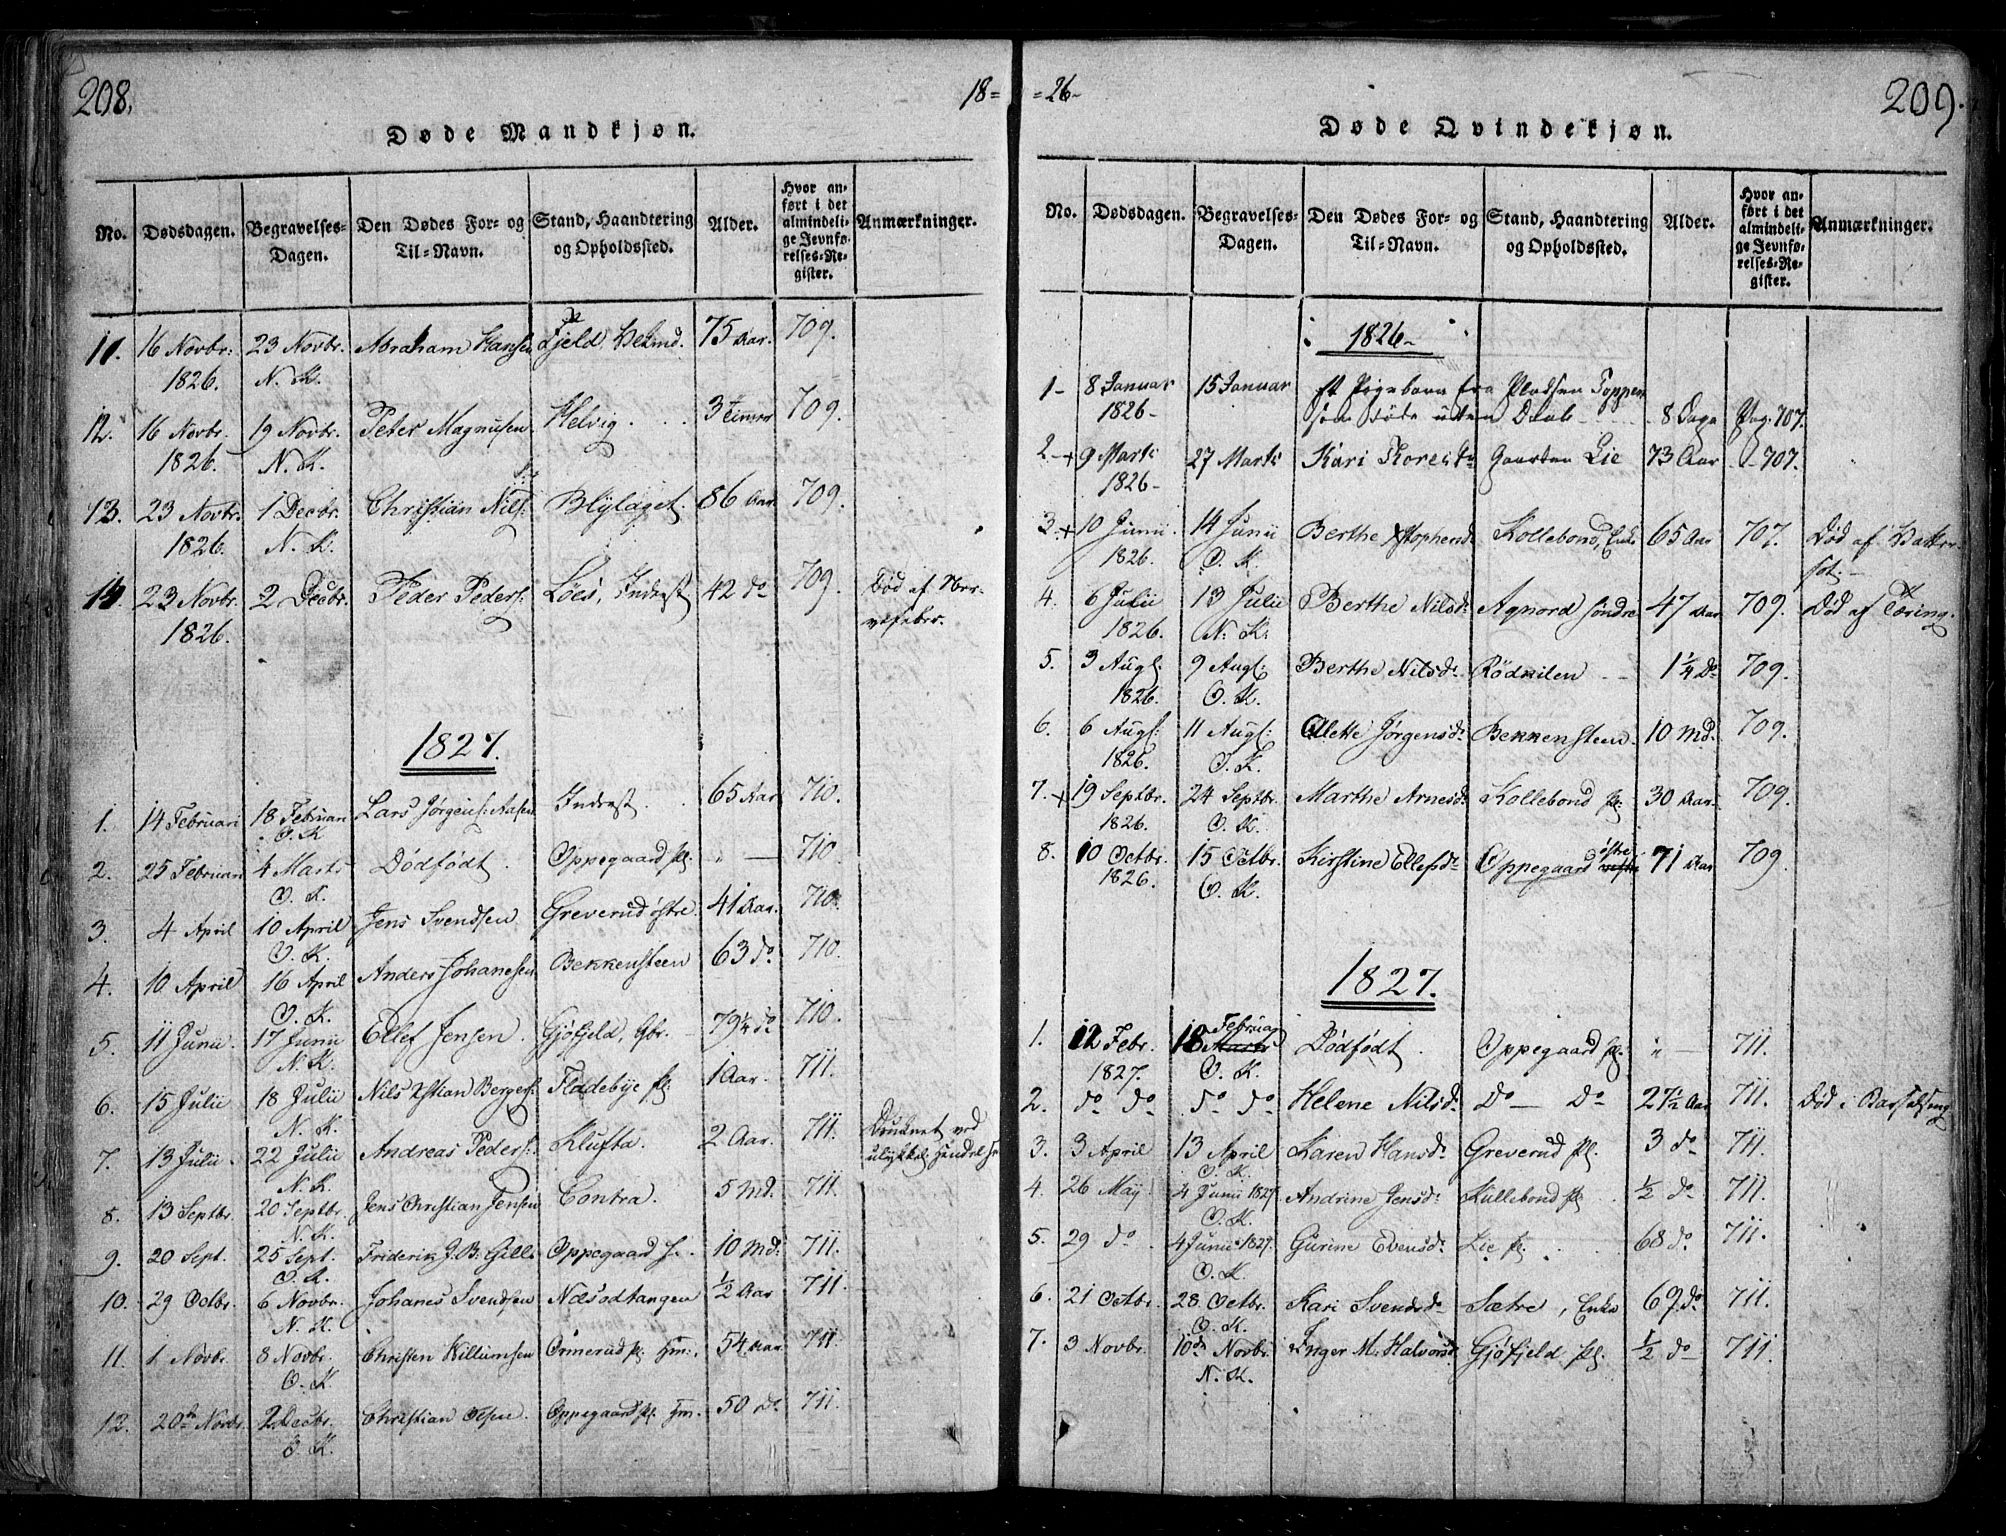 208.
18=
Døde Mandkjøn.
No. Dødsdagen. Begravelses-Dagen. Den Dødes For- og Til-Navn. Stand, Haandtering og Opholdssted. Alder. Hvor anført i det almindelige Jevnførelses-Register. Anmærkninger.
11. 16 Novbr: 23 Novbr. Abraham Hansen Fjeld 75 Aar. 709.
1826. N. K.
12. 16 Novbr. 19 Novbr. Peter Magnusen Helvig 3 Timer 709.
1826. N. K.
13. 23 Novbr. 1 Decbr. Christian Nils: Blylaget. 86 Aar. 709.
1826. N. K.
14. 23 Novbr. 2 Decbr. Peder Peders: Löes, Inderst 42 do 709. Död af Ner-
1826. vefeber.
1827.
1. 14 Februari 18 Februari Lars Jørgens: Aasen Inderst. 65 Aar 710.
O. K
2. 25 Februari 4 Marts Dödfödt. Oppegaard pl. " — 710.
O. K.
3. 4 April 10 April Jens Svendsen Greverud østre 41 Aar. 710.
O. K.
4. 10 April 16 April Anders Johanesen Bekkensteen 63 do. 710.
O. K.
5. 11 Junii. 17 Junii Ellef Jensen. Gjøfjeld, Gbr. 79¼ do 710.
N. K.
6. 15 Julii 18 Julii Nils Xstian Berges: Fladebye pl. 1 Aar. 711.
N. K.
7. 13 Julii. 22 Julii Andreas Peders: Klufta. 2 Aar. 711. Druknet ved
N. K. ulykkel. Hændelse
8. 13 Septbr. 20 Septbr. Jens Christian Jensen Contra. 5 Md. 711.
N. K.
9. 20 Sept. 25 Sept. Friderik J. B. Oppegaard 10 Md. 711.
O. K.
10. 29 Octbr. 6 Novbr. Johanes Svendsen Næsodtangen ½ Aar 711.
N. K.
11. 1 Novbr. 8 Novbr. Christen Killumsen Ormerud pl. Hm. 54 Aar. 711.
O. K.
12. 20de Novbr. 2 Decbr. Christian Olsen Oppegaard pl. Hm. 50 do. 711.
O. K.
=26-
209.
Døde Qvindekjøn.
No. Dødsdagen. Begravelses-Dagen. Den Dødes For- og Til-Navn. Stand, Haandtering og Opholdssted. Alder. Hvor anført i det almindelige Jevnførelses-Register. Anmærkninger.
1826-
1- 8 Januar 15 Januar et Pigebarn fra Pladsen Toppen
1826- som døde uden Daab 8 Dage Pag. 707.
2.-+ 9 Marts 27 Marts Kari Gaarden Lie 73 Aar 707.
1826-
3.+ 10 Junii. 14 Junii Berthe Xstophersd. Kollebond, Enke 65 Aar 707. Död af Vatter-
1826. O. K. sot.-
4. 6 Julii 13 Julii Berthe Nilsd. Agnord söndre 47 Aar 709. Död af Tæring.
1826. N. K:
5. 3 Augs. 9 Augs: Berthe Nilsd. Rödkilen 1¼ do 709.
1826. O. K.
6. 6 Augs. 11 Augs: Olette Jørgensd. Bekkensteen. 10 Md. 709.
1826. O. K.
7.+ 19 Septbr. 24 Septbr. Marthe Arnesd. Kollebond pl. 30 Aar. 709.
1826. O. K.
8. 10 Octbr. 15 Octbr. Kirstine Ellefsd. Oppegaard østre 71 Aar 709.
1826. O. K.
1827.
1. 12 Febr. 18 Februar Dödfödt. Oppegaard pl. " — 711.
1827. O. K.
2. do do do do Helene Nilsd. Do — Do 27½ Aar 711. Död i Barselseng
3. 3 April 13 April Karen Hansd. Greverud pl. 3 do 711.
O. K.
4. 26 May. 4 Junii 1827. Andrine Jensd. Kullebond pl ½ do 711.
O. K.
5. 29 do. 4 Junii 1827. Gurine Evensd. Lie pl. 68 do 711.
O. K.
6. 21 Octbr. 28 Octbr. Kari Svendsd. Sætre, Enke 69 do 711.
O. K.
7. 3 Novbr. 10de Novbr. Inger M: Halvorsd. Gjøfjeld pl. ½ do 711.
N. K.